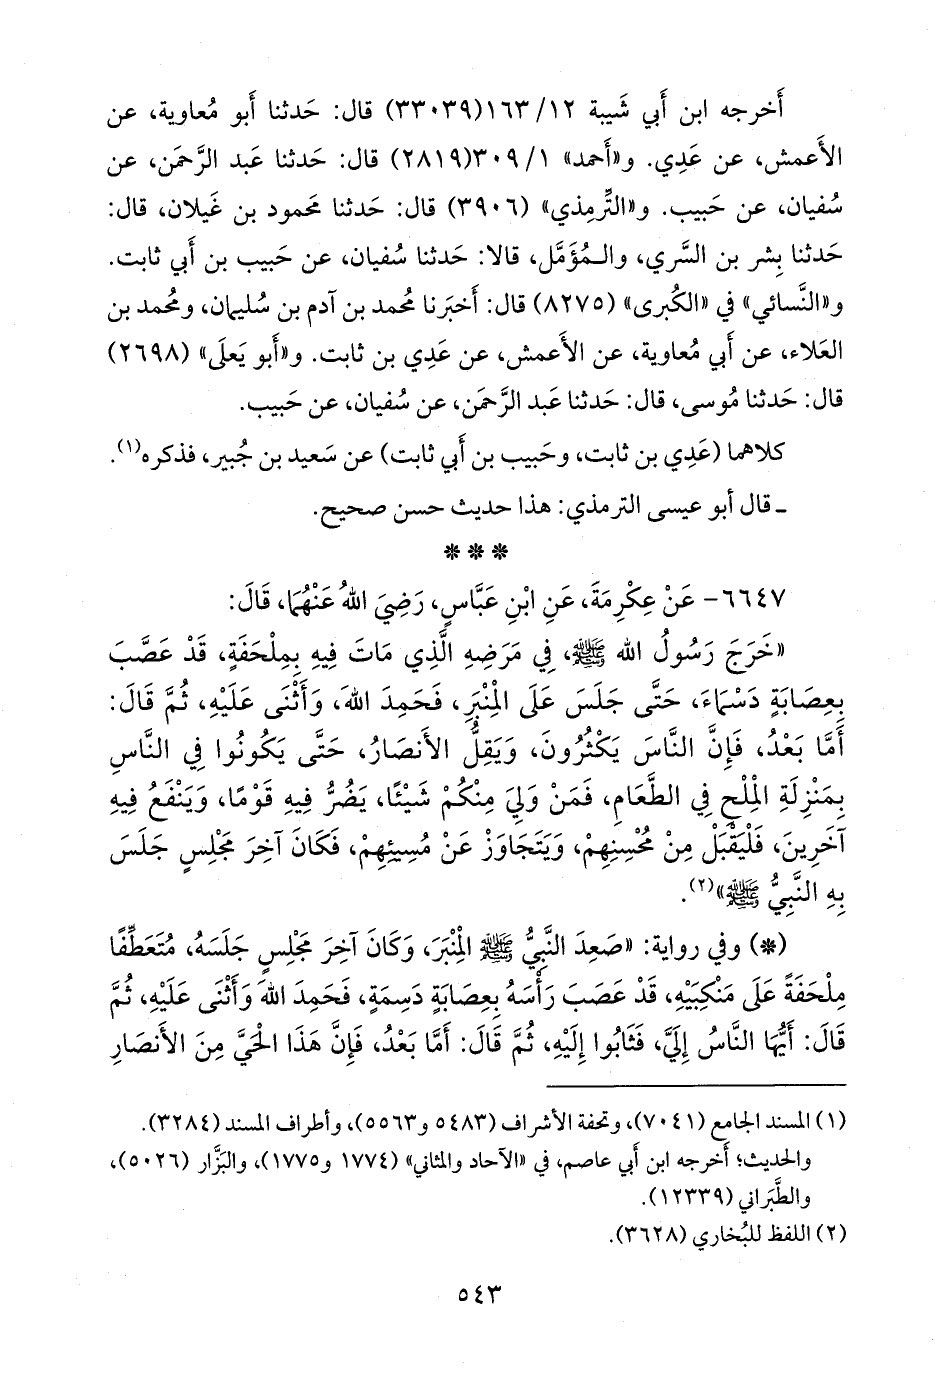 أَخرجه ابن أَبي شَيبة ١٢/ ١٦٣(٣٣٠٣٩) قال: حَدثنا أَبو مُعاوية، عن
الأَعمش، عن عَدِي. و«أَحمد» ١/ ٣٠٩(٢٨١٩) قال: حَدثنا عَبد الرَّحمَن، عن
سُفيان، عن حَبيب. و«التِّرمِذي» (٣٩٠٦) قال: حَدثنا محمود بن غَيلان، قال:
حَدثنا بِشر بن السَّري، والـمُؤَمَّل، قالا: حَدثنا سُفيان، عن حَبيب بن أَبي ثابت.
و«النَّسائي» في «الكُبرى» (٨٢٧٥) قال: أَخبَرنا مُحمد بن آدم بن سُليمان، ومُحمد بن
العَلاء، عن أَبي مُعاوية، عن الأَعمش، عن عَدِي بن ثابت. و«أَبو يَعلَى» (٢٦٩٨)
قال: حَدثنا مُوسى، قال: حَدثنا عَبد الرَّحمَن، عن سُفيان، عن حَبيب.
كلاهما (عَدِي بن ثابت، وحَبيب بن أَبي ثابت) عن سَعيد بن جُبير، فذكره(١).
ـ قال أبو عيسى الترمذي: هذا حديث حسن صحيح.
* * *
٦٦٤٧- عَنْ عِكْرِمَةَ، عَنِ ابْنِ عَبَّاسٍ، رَضِيَ اللهُ عَنْهُمَا، قَالَ:
«خَرَجَ رَسُولُ الله ﷺ، فِي مَرَضِهِ الَّذِي مَاتَ فِيهِ بِمِلْحَفَةٍ، قَدْ عَصَّبَ
بِعِصَابَةٍ دَسْمَاءَ، حَتَّى جَلَسَ عَلَى الْمِنْبَرِ، فَحَمِدَ اللهَ، وَأَثْنَى عَلَيْهِ، ثُمَّ قَالَ:
أَمَّا بَعْدُ، فَإِنَّ النَّاسَ يَكْثُرُونَ، وَيَقِلُّ الأَنصَارُ، حَتَّى يَكُونُوا فِي النَّاسِ
بِمَنْزِلَةِ الْمِلْحِ فِي الطَّعَامِ، فَمَنْ وَلِيَ مِنْكُمْ شَيْئًا، يَضُرُّ فِيهِ قَوْمًا، وَيَنْفَعُ فِيهِ
آخَرِينَ، فَلْيَقْبَلْ مِنْ مُحْسِنِهِمْ، وَيَتَجَاوَزْ عَنْ مُسِيئِهِمْ، فَكَانَ آخِرَ مَجْلِسٍ جَلَسَ
بِهِ النَّبِيُّ ﷺ»(٢).
(*) وفي رواية: «صَعِدَ النَّبِيُّ ﷺ الْمِنْبَرَ، وَكَانَ آخِرَ مَجْلِسٍ جَلَسَهُ، مُتَعَطِّفًا
مِلْحَفَةً عَلَى مَنْكِبَيْهِ، قَدْ عَصَبَ رَأْسَهُ بِعِصَابَةٍ دَسِمَةٍ، فَحَمِدَ اللهَ وَأَثْنَى عَلَيْهِ، ثُمَّ
قَالَ: أَيُّهَا النَّاسُ إِلَيَّ، فَثَابُوا إِلَيْهِ، ثُمَّ قَالَ: أَمَّا بَعْدُ، فَإِنَّ هَذَا الْحَيَّ مِنَ الأَنْصَارِ
(١) المسند الجامع (٧٠٤١)، وتحفة الأشراف (٥٤٨٣ و٥٥٦٣)، وأطراف المسند (٣٢٨٤).
والحديث؛ أخرجه ابن أبي عاصم، في «الآحاد والمثاني» (١٧٧٤ و١٧٧٥)، والبَزَّار (٥٠٢٦)،
والطَّبَراني (١٢٣٣٩).
(٢) اللفظ للبُخاري (٣٦٢٨).
٥٤٣